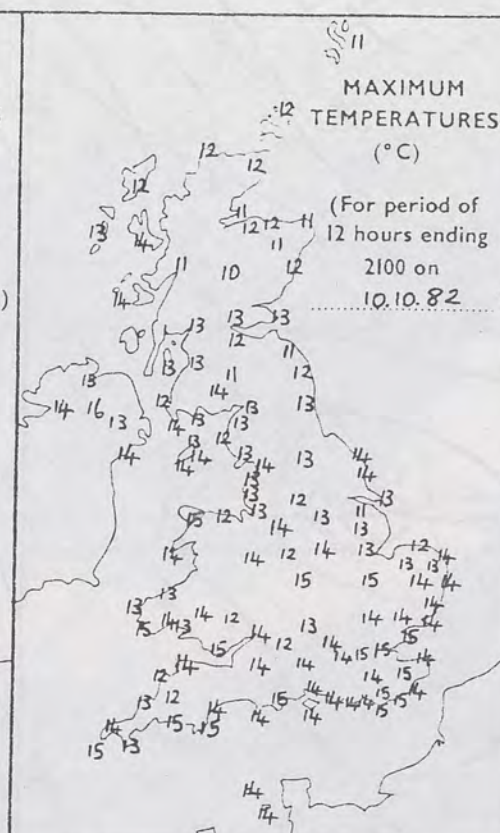 11
MAXIMUM
TEMPERATURES
(°C)
(For period of
12 hours ending
2100 on
10.10.82
)
12
12
12
12
11
12 12 11
13
14
11
11
10
12
14
13
13 13
12
13
13
11
11
12
13
14
12
13
14
16
13
14
14
13
13
13
12
13
14
14
13
14
13
14
14
13
13
13
12
11
13
13
15
12
14
14
14
12
14
13
12
14
13
13
14
15
15
14
14
13
13
14
15
14
13
14
12
13
14
14
14
15
15
14
12
14
14
15
15
14
14
14
14
15
14
12
12
13
14
15
14
14
15
14
14
14
14
14
15
15
15
14
14
13
15
15
15
14
14